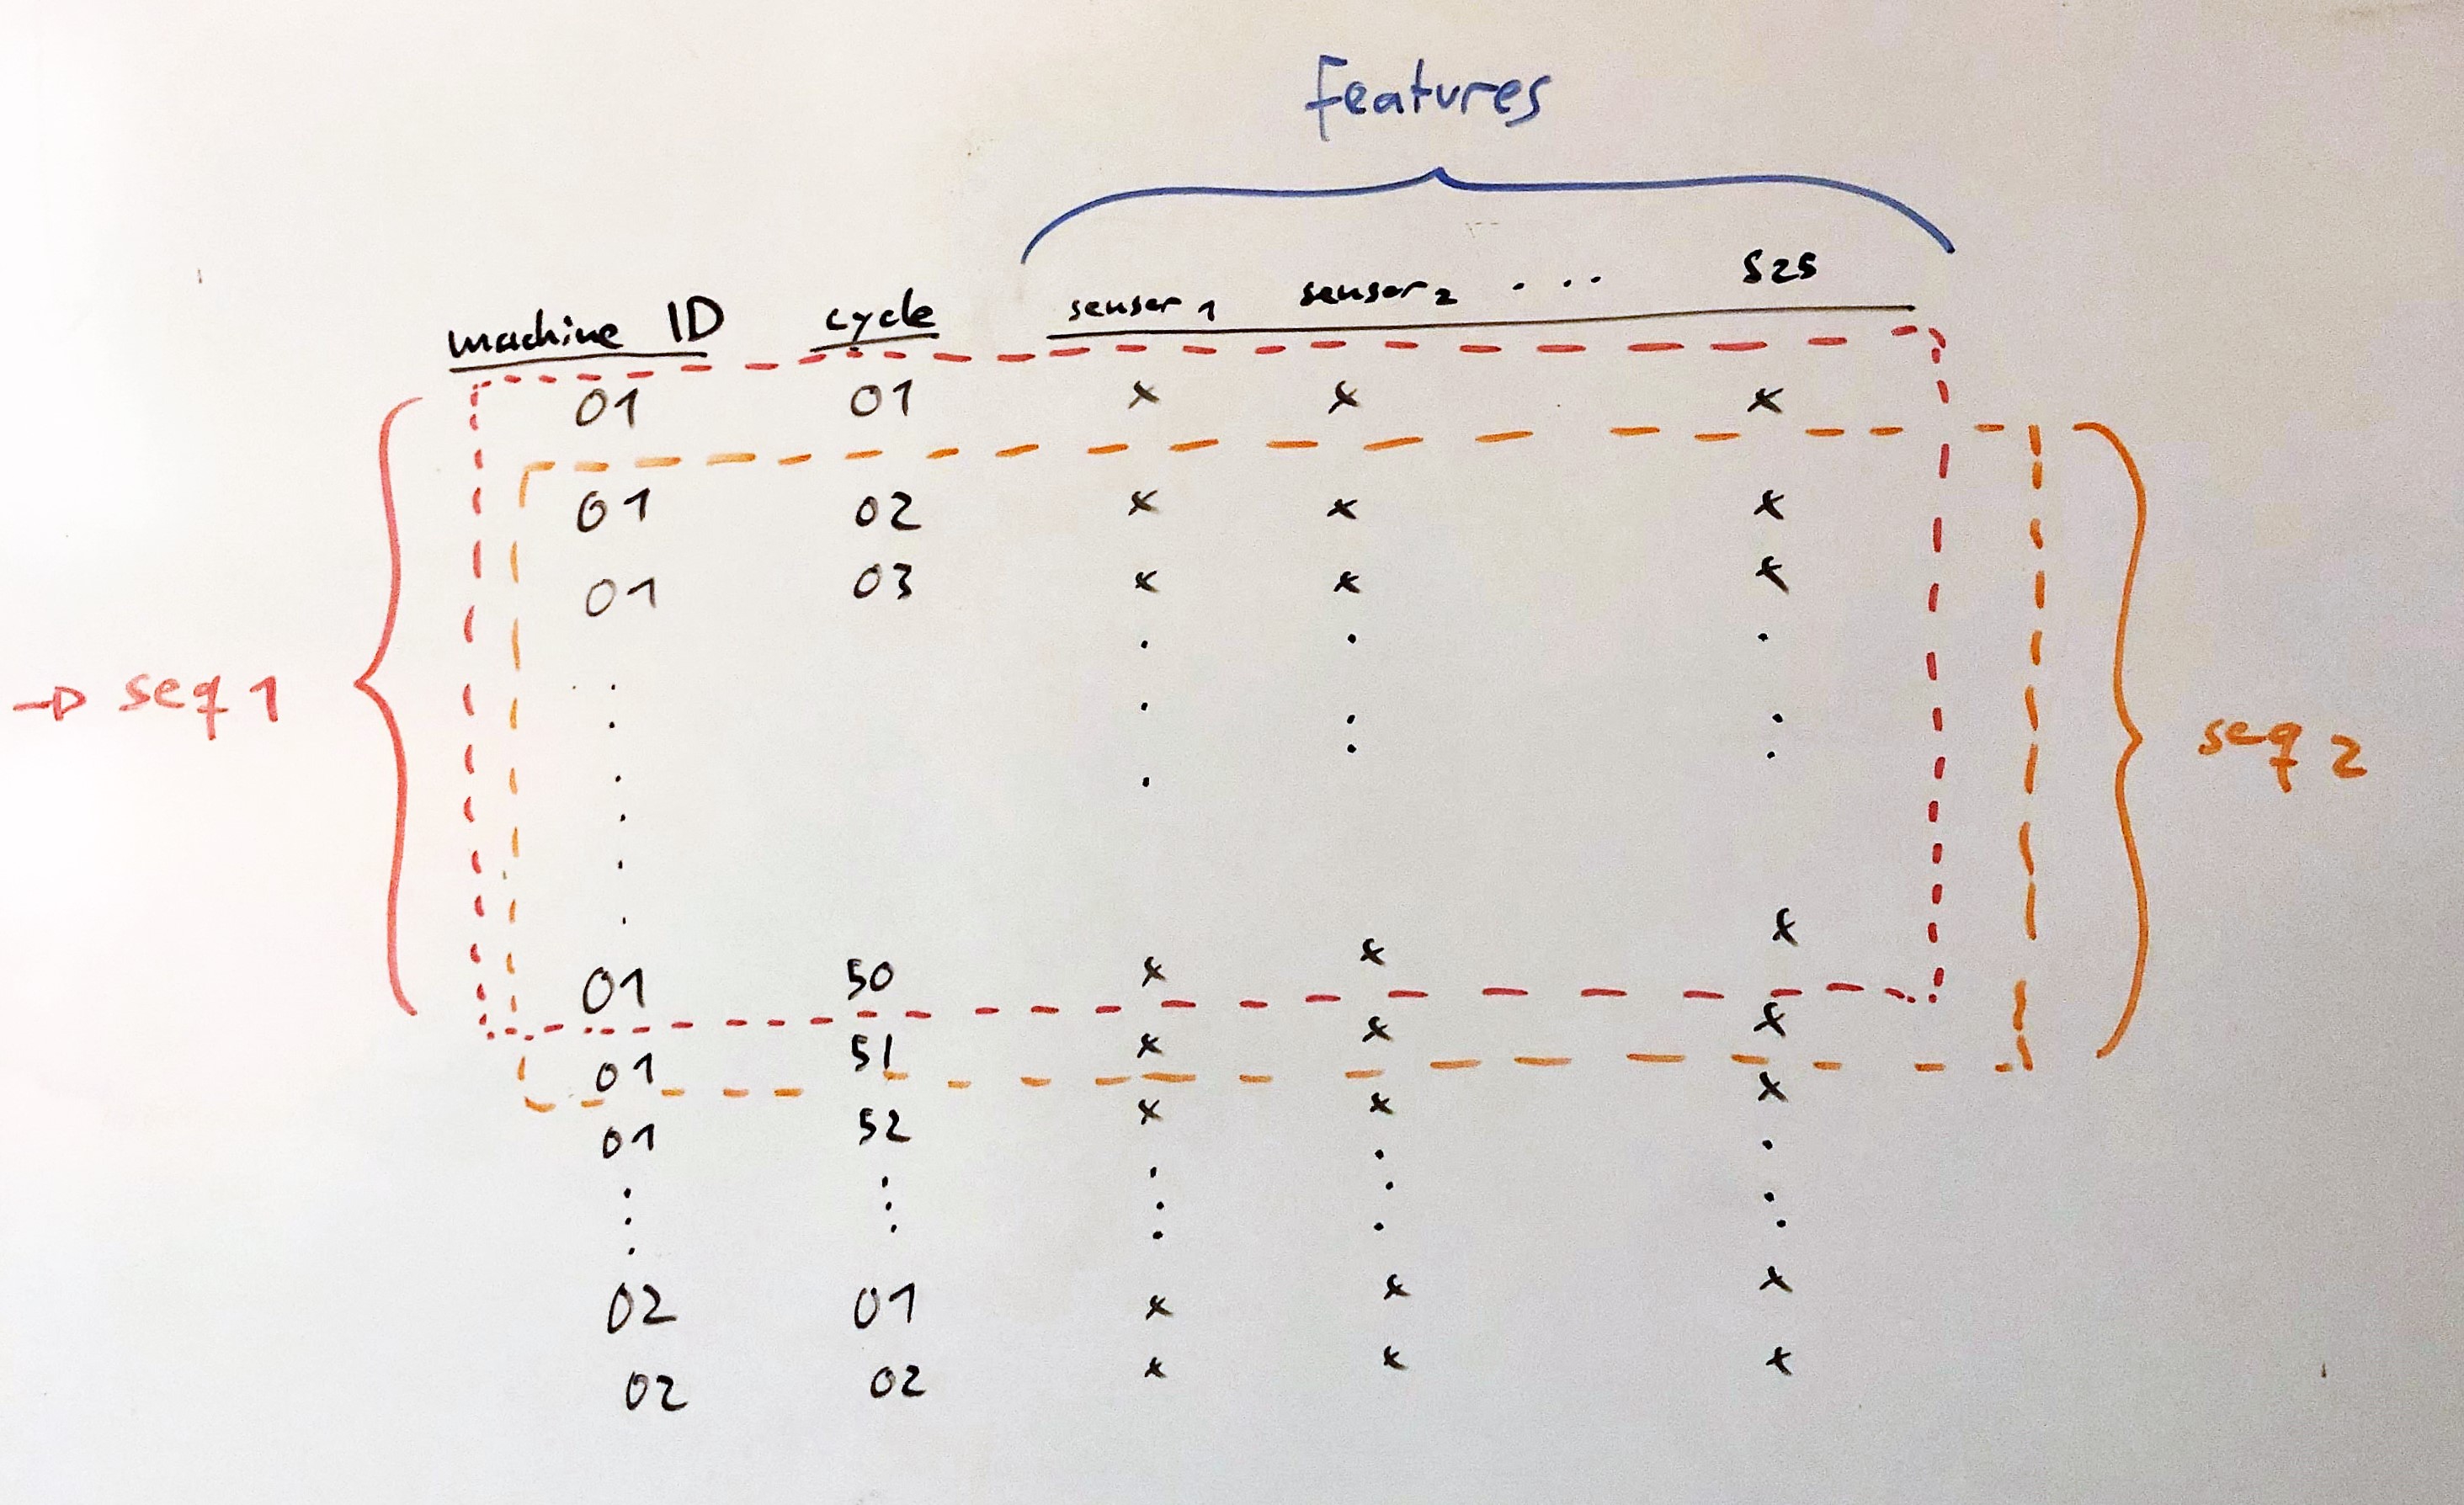 features
machine ID cycle sensor 1 sensor 2 . . . . S25
01 01 x x x
01 02 x x x
01 03 x x x
→ seq 1
seq 2
01 50 x x x
01 51 x x x
01 52 x x x
02 01 x x x
02 02 x x x